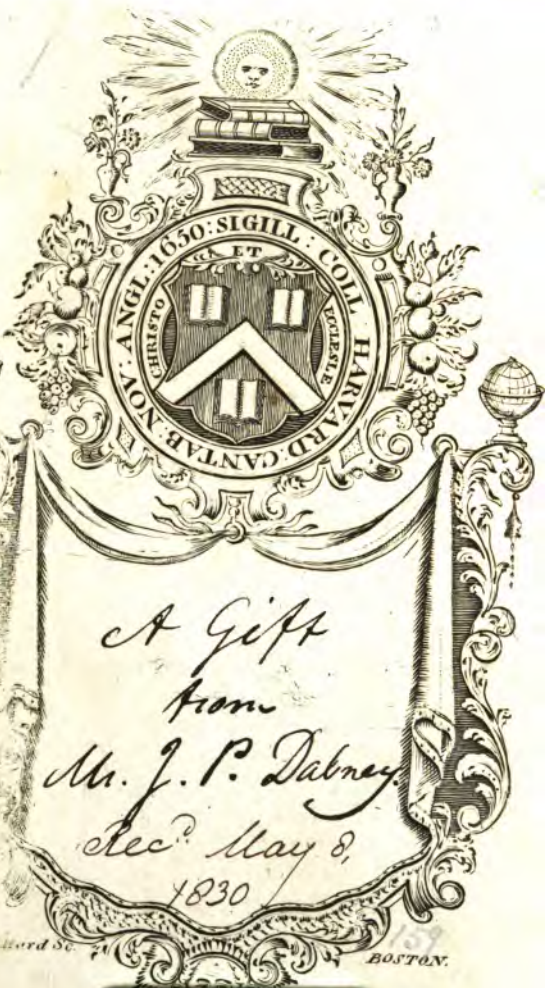 SIGILL : COLL : HARVARD : CANTAB : NOV : ANGL : 1650 :
CHRISTO
ET
ECCLESIÆ
A Gift
from
Mr. J. P. Dabney.
Recd May 8,
1830
Sc.
159
BOSTON.